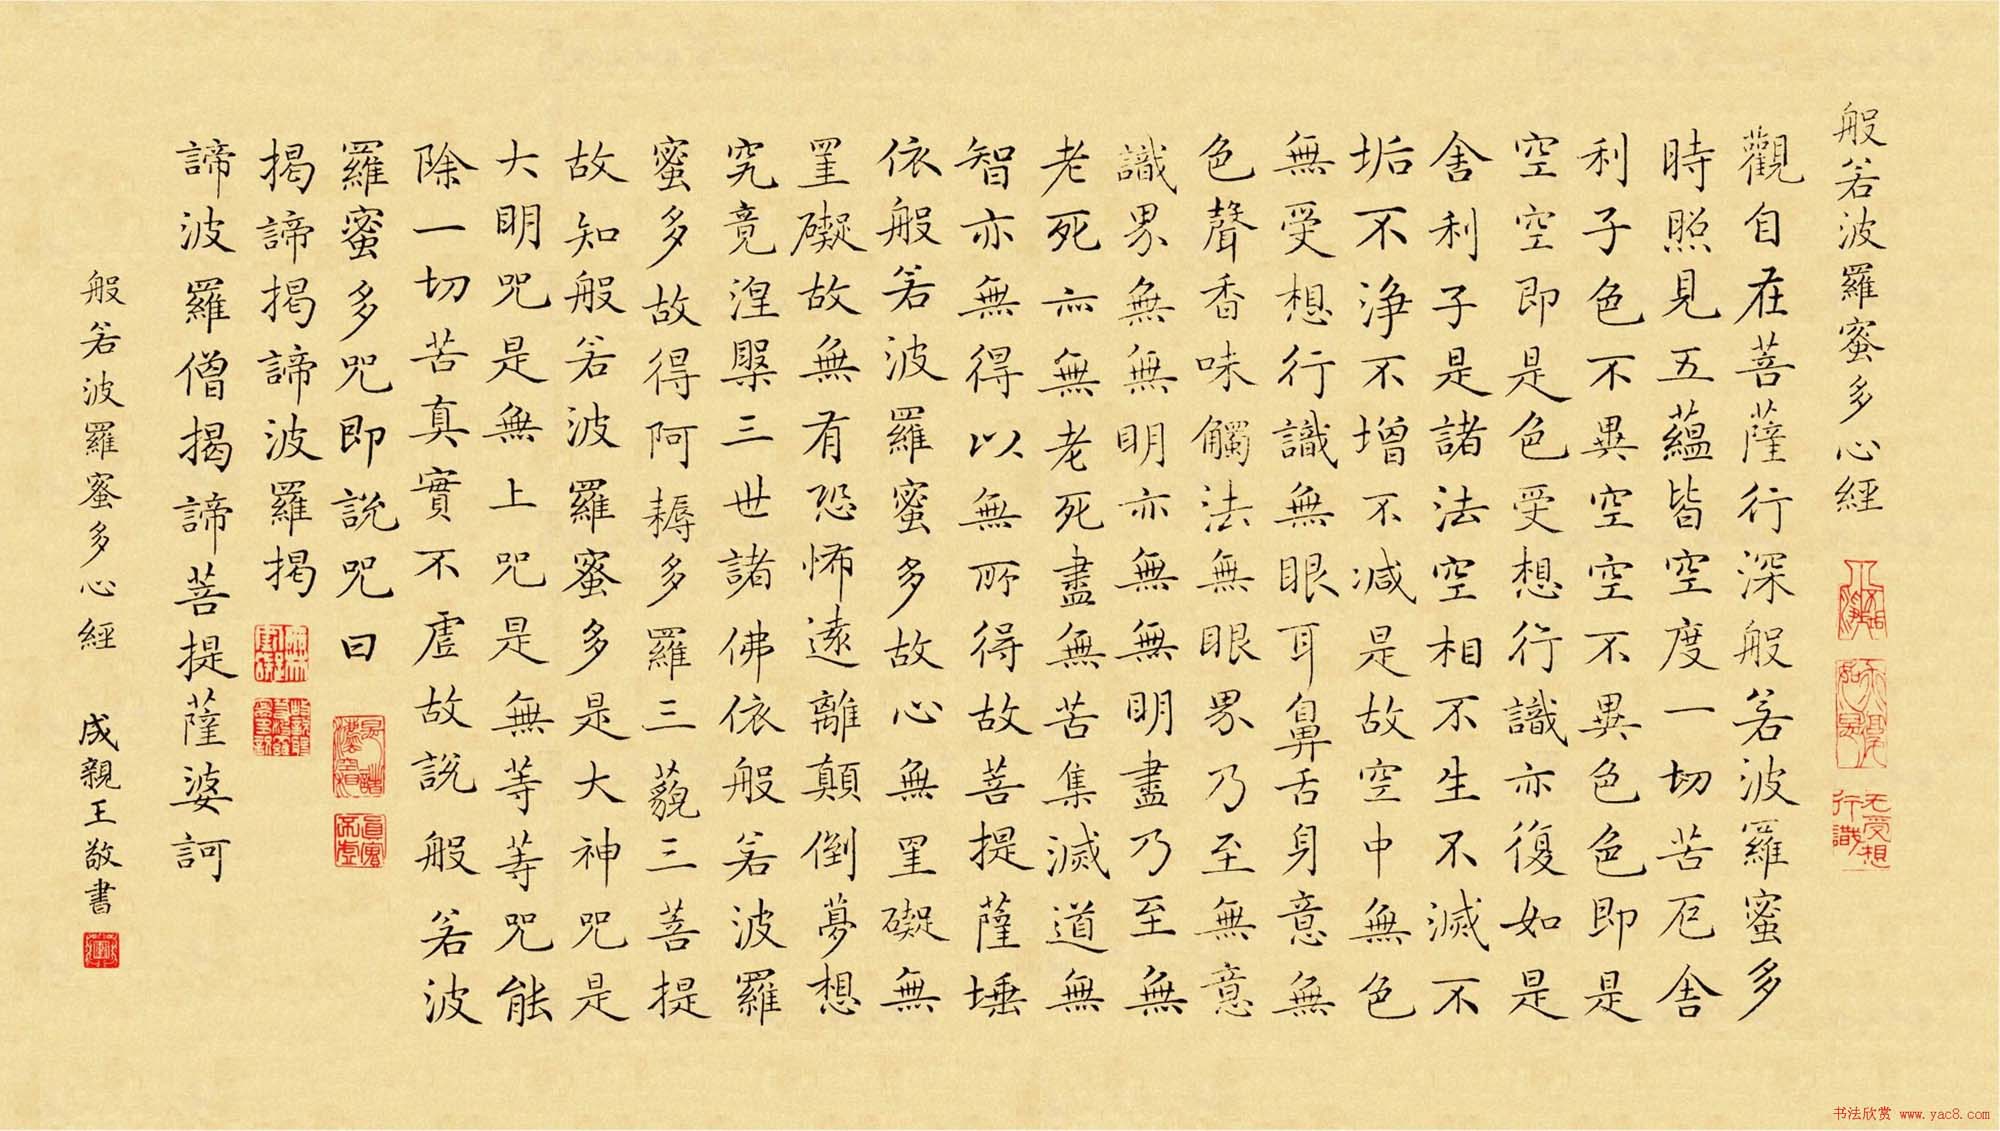 般若波羅蜜多心經
觀自在菩薩行深般若波羅蜜多
時照見五蘊皆空度一切苦厄舍
利子色不異空空不異色色即是
空空即是色受想行識亦復如是
舍利子是諸法空相不生不滅不
垢不淨不增不減是故空中無色
無受想行識無眼耳鼻舌身意無
色聲香味觸法無眼界乃至無意
識界無無明亦無無明盡乃至無
老死亦無老死盡無苦集滅道無
智亦無得以無所得故菩提薩埵
依般若波羅蜜多故心無罣礙無
罣礙故無有恐怖遠離顛倒夢想
究竟涅槃三世諸佛依般若波羅
蜜多故得阿耨多羅三藐三菩提
故知般若波羅蜜多是大神咒是
大明咒是無上咒是無等等咒能
除一切苦真實不虛故說般若波
羅蜜多咒即說咒曰
揭諦揭諦波羅揭
諦波羅僧揭諦菩提薩婆訶
般若波羅蜜多心經 成親王敬書
无受想行識
书法欣赏 www.yac8.com